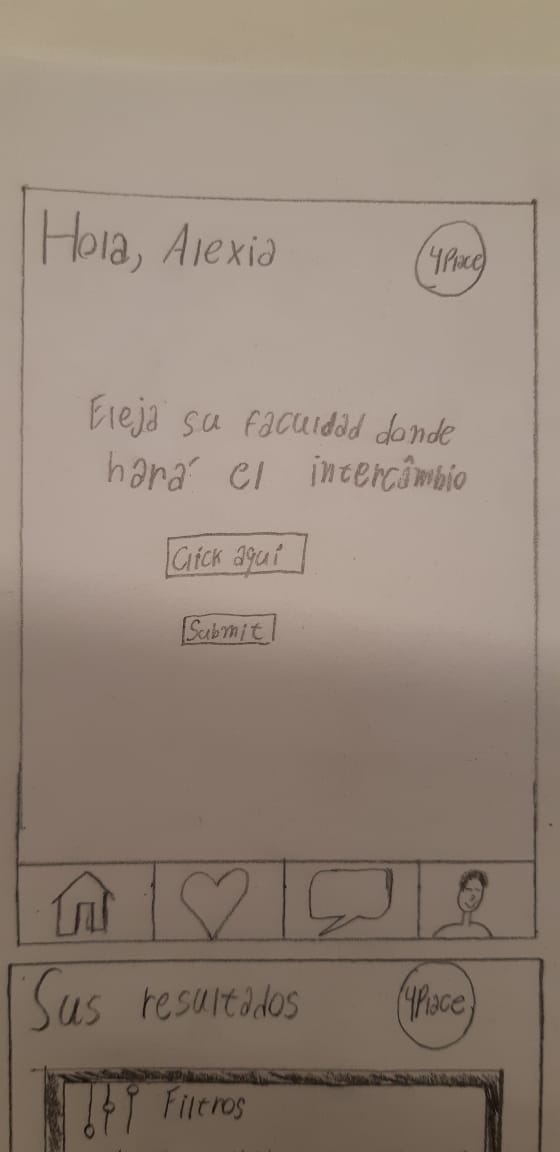 Hola, Alexia
4Place
Eleja su facultad donde
hará el intercâmbio
Click aquí
Submit
Sus resultados
4Place
Filtros